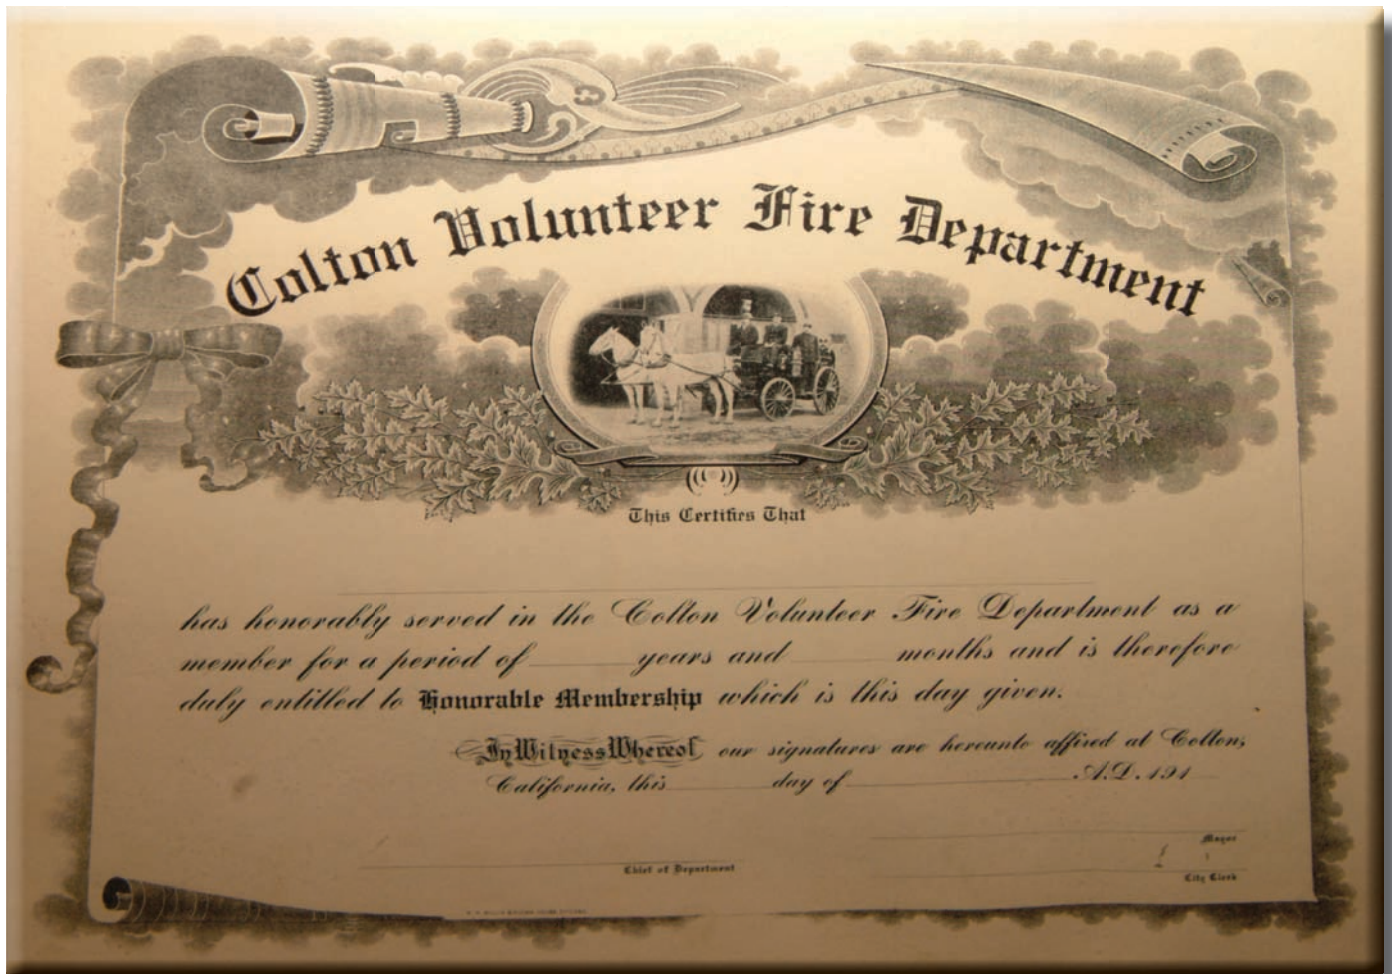 Colton Volunteer Fire Department
This Certifies That
has honorably served in the Colton Volunteer Fire Department as a
member for a period of years and months and is therefore
duly entitled to Honorable Membership which is this day given.
In Witness Whereof our signatures are hereunto affixed at Colton,
California, this day of A.D. 191
Mayor
Chief of Department
City Clerk